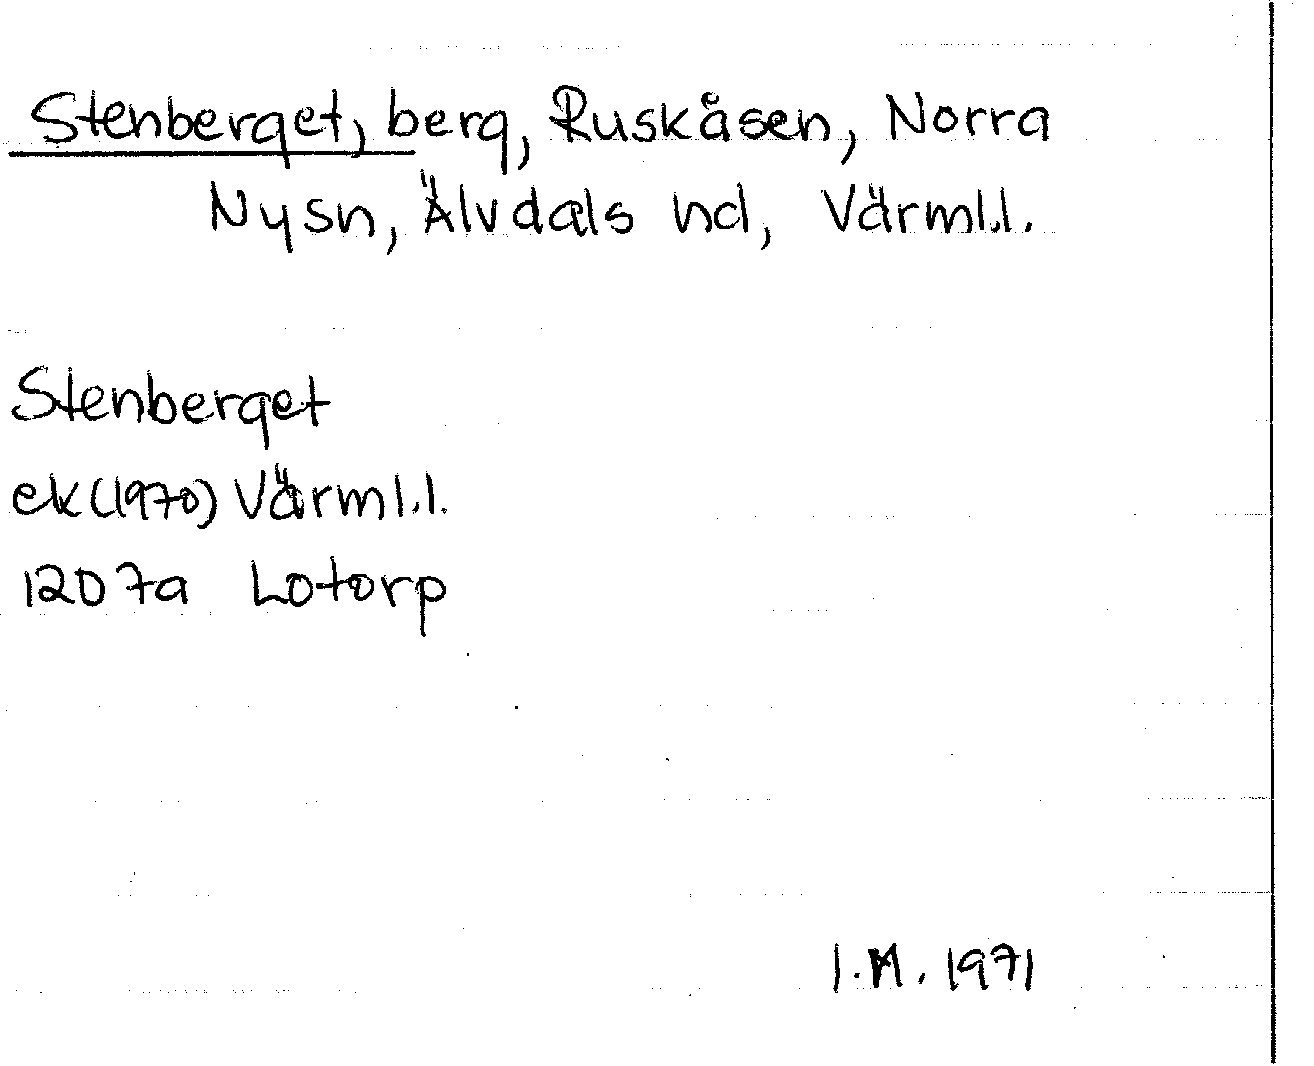 Stenberget, berg, Ruskåsen, Norra
Nysn, Älvdals hd, Värml.l.
Stenberget
ek (1970) Värml.l.
1207a Lotorp
I.M. 1971